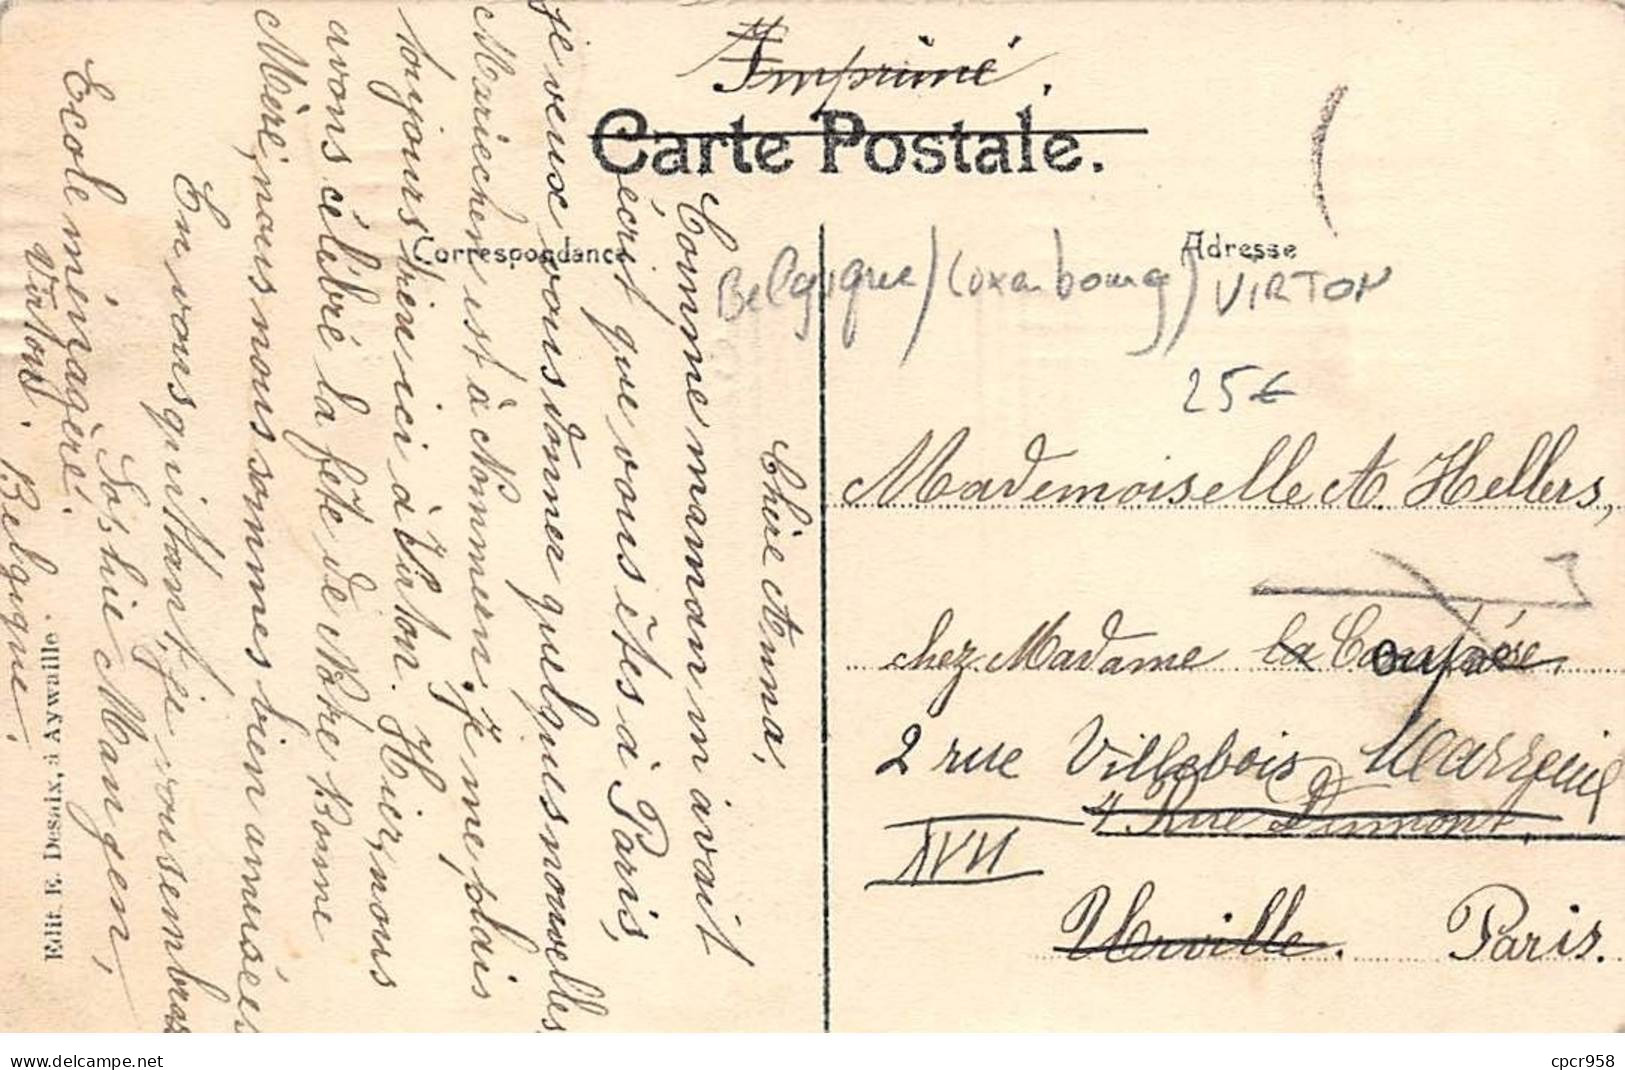 Imprimé.
Carte Postale.
Correspondance
Adresse
Belgique/Luxembourg) VIRTON
25€
Chère Anna,
Comme maman m'avait
écrit que vous êtes à Paris,
je veux vous donner quelques nouvelles
Mariechen est à Nommern, je me plais
toujours bien ici à Virton. Hier, nous
avons célébré la fête de Nôtre Bonne
Mère, nous nous sommes bien amusées
En vous quittant, je vous embras
Sophie Mangen,
Ecole ménagère.
Virton.
Belgique.
Edit. E. Desaix, à Aywaille
Mademoiselle A. Hellers,
chez Madame la
2 rue Villebois Mareuil
4 Rue Dumont,
XVII
Urville. Paris.
cpcr958